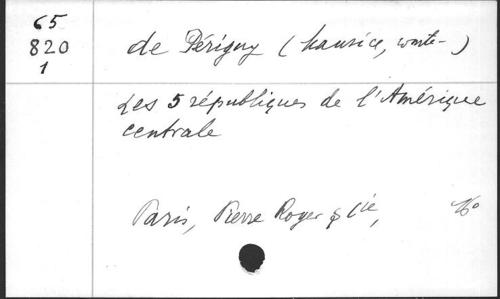 65
820
1
de Périgny (Maurice, comte-)
Les 5 républiques de l'Amérique
centrale
Paris, Pierre Roger & Cie,